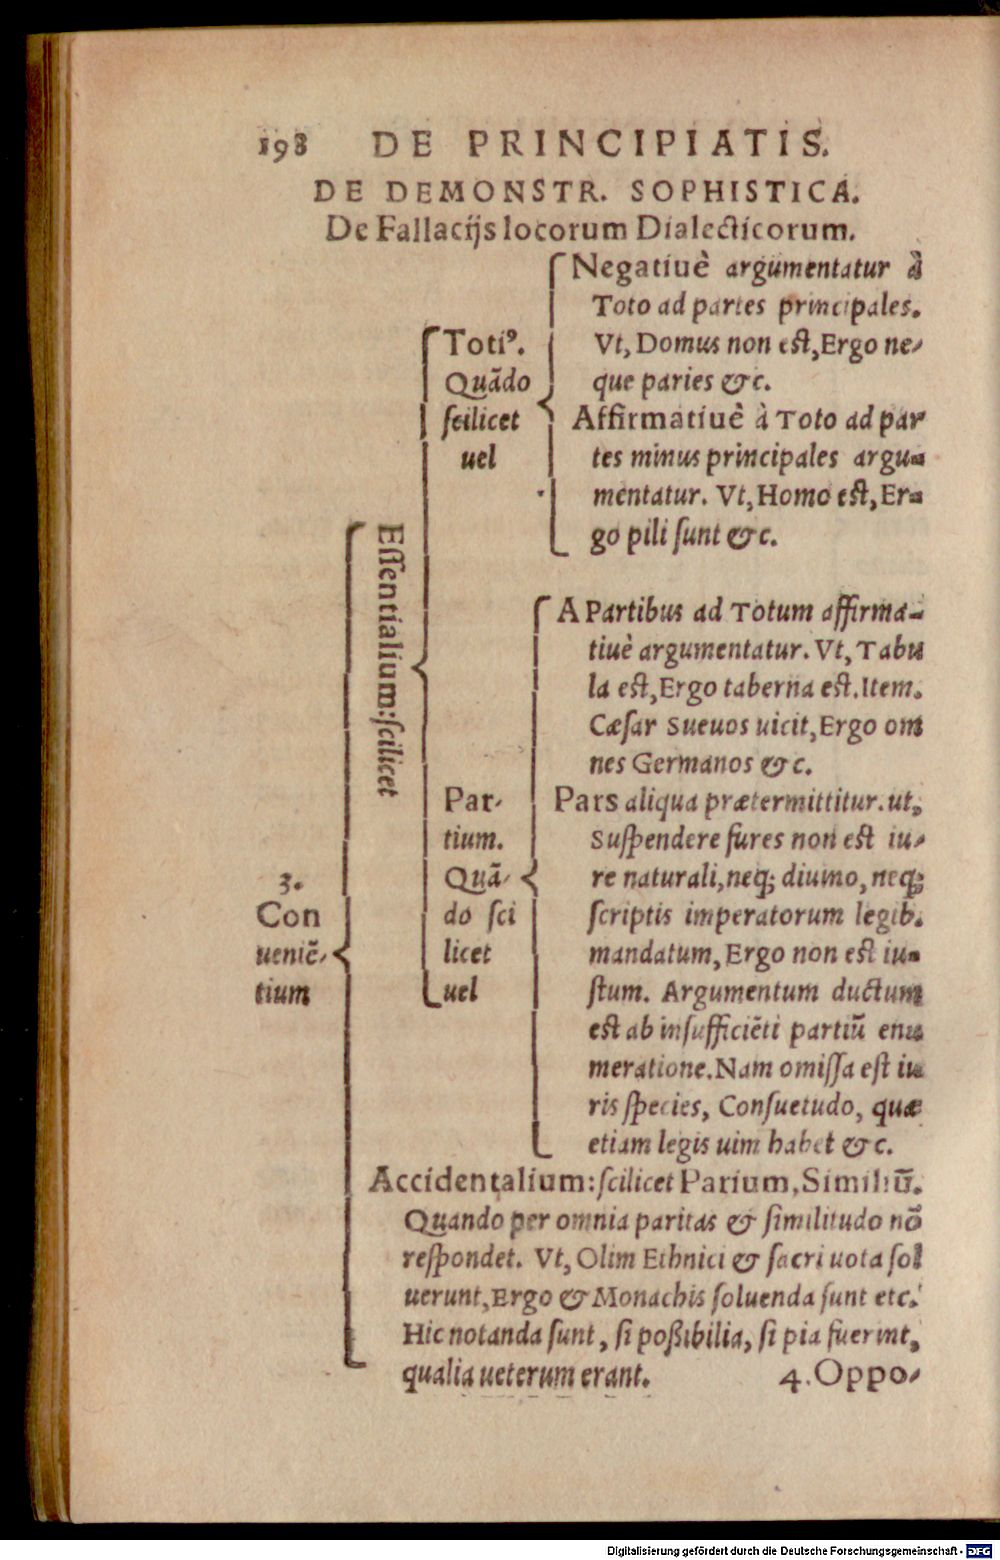 198 DE PRINCIPIATIS.
DE DEMONSTR. SOPHISTICA.
De Fallacijs locorum Dialecticorum.
3.
Con
ueniẽ-
tium
Essentialium: scilicet
Totiꝰ.
Quãdo
scilicet
uel
Negatiuè argumentatur à
Toto ad partes principales.
Vt, Domus non est, Ergo ne-
que paries &c.
Affirmatiuè à Toto ad par
tes minus principales argu-
mentatur. Vt, Homo est, Er-
go pili sunt &c.
Par-
tium.
Quã-
do sci
licet
uel
A Partibus ad Totum affirma-
tiuè argumentatur. Vt, Tabu
la est, Ergo taberna est. Item.
Cæsar Sueuos uicit, Ergo om
nes Germanos &c.
Pars aliqua prætermittitur. ut,
Suspendere fures non est iu-
re naturali, neq; diuino, neq;
scriptis imperatorum legib.
mandatum, Ergo non est iu-
stum. Argumentum ductum
est ab insufficiẽti partiũ enu
meratione. Nam omissa est iu
ris species, Consuetudo, quæ
etiam legis uim habet &c.
Accidentalium: scilicet Parium, Similiũ.
Quando per omnia paritas & similitudo nõ
respondet. Vt, Olim Ethnici & sacri uota sol
uerunt, Ergo & Monachis soluenda sunt etc.
Hic notanda sunt, si poßibilia, si pia fuerint,
qualia ueterum erant.
4. Oppo-
Digitalisierung gefördert durch die Deutsche Forschungsgemeinschaft - DFG